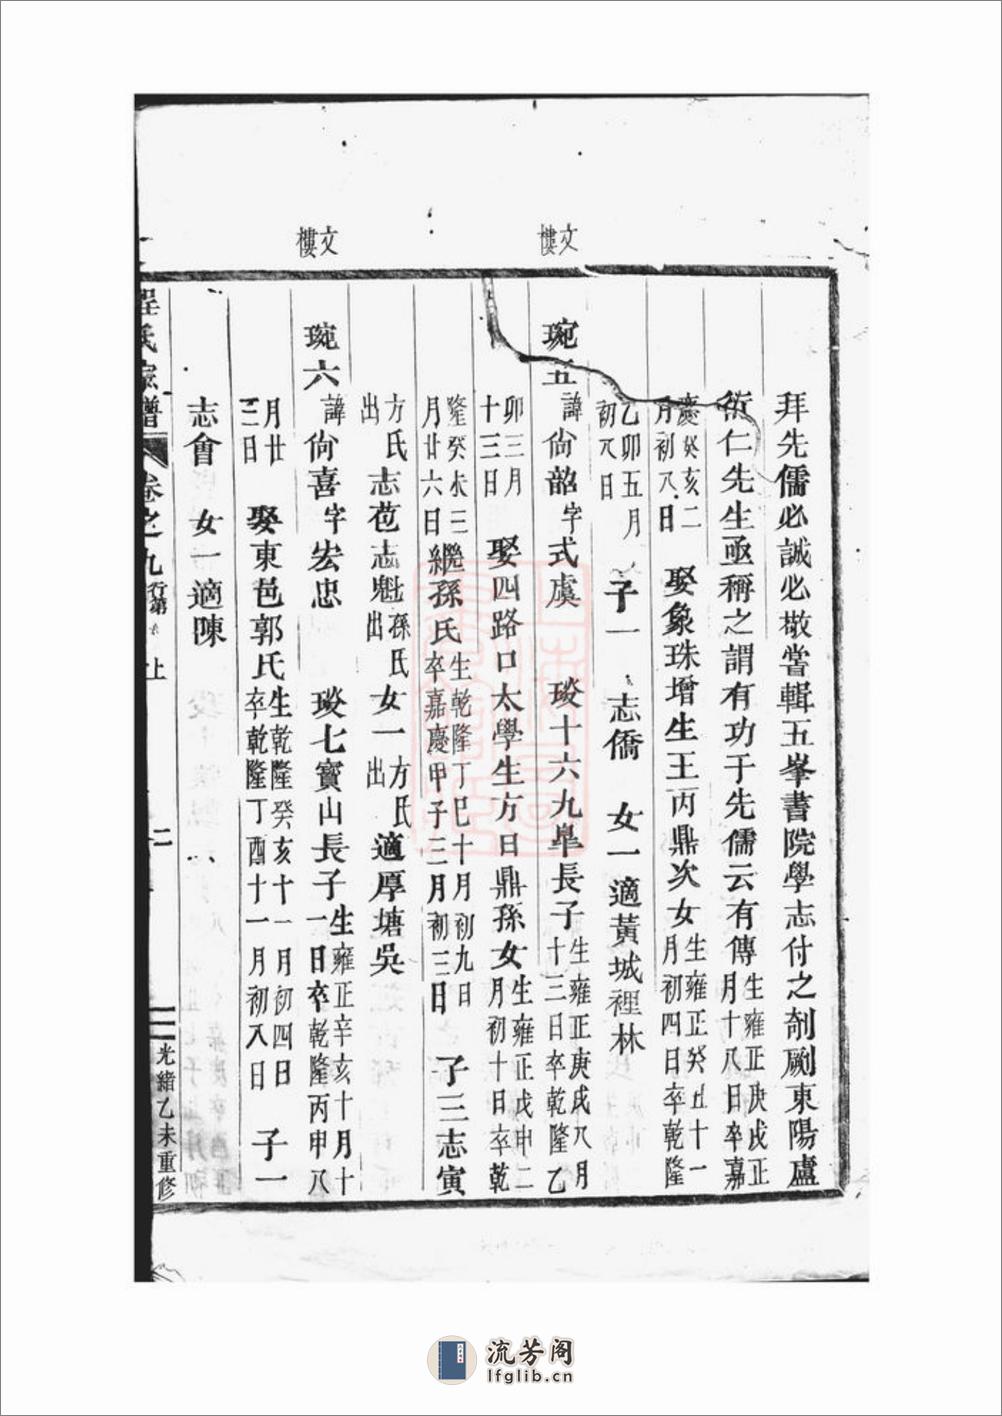 文樓
文樓
拜先儒必誠必敬嘗輯五峯書院學志付之剞劂東陽盧
衒仁先生亟稱之謂有功于先儒云有傳生雍正庚戌正月十八日卒嘉
慶癸亥二月初八日 娶象珠增生王丙鼎次女生雍正癸丑十一月初四日卒乾隆
乙卯五月初八日 子一 志僑 女一適黃城裡林
琬五 諱尙韶字式虞 琰十六九臯長子生雍正庚戌八月十三日卒乾隆乙
卯三月十三日 娶四路口太學生方日鼎孫女生雍正戊申二月初十日卒乾
隆癸未三月廿六日 繼孫氏生乾隆丁巳十月初九日卒嘉慶甲子三月初三日 子三志寅
方氏出 志苞志魁孫氏出 女一方氏出 適厚塘吳
琬六 諱尙喜字宏忠 琰七寶山長子生雍正辛亥十月十一日卒乾隆丙申八
月廿三日 娶東邑郭氏生乾隆癸亥十一月初四日卒乾隆丁酉十一月初八日 子一
志會 女一適陳
程氏宗譜 卷之九 行第 上 光緒乙未重修
流芳阁
lfglib.cn